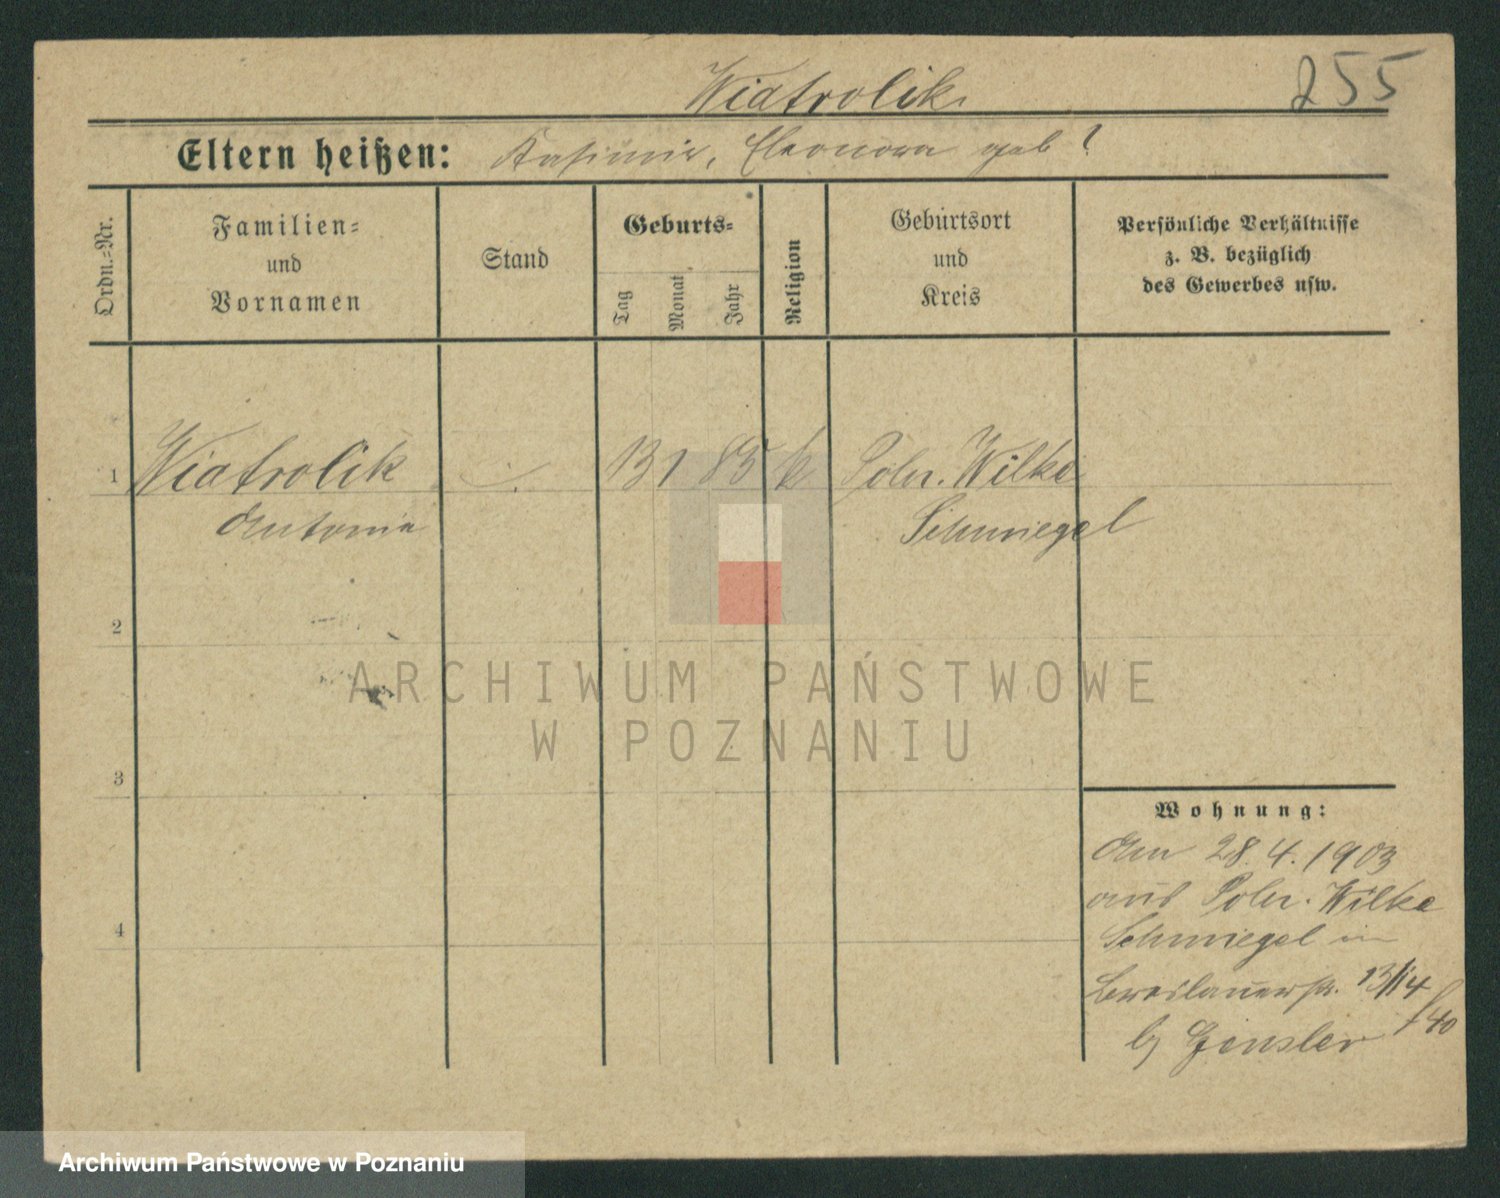 Wiatrolik
255
Eltern heißen: Kasimir, Eleonora geb ?
Ordn.=Nr.
Familien=
und
Vornamen
Stand
Geburts=
Tag
Monat
Jahr
Religion
Geburtsort
und
Kreis
Persönliche Verhältnisse
z. B. bezüglich
des Gewerbes usw.
1 Wiatrolik 13 1 85 k Poln. Wilke
Antonie Schmiegel
2
3
4
Wohnung:
Am 28.4.1903
aus Poln. Wilke
Schmiegel in
Breslauerstr. 13/14
b/ Gensler
ARCHIWUM PAŃSTWOWE
W POZNANIU
Archiwum Państwowe w Poznaniu